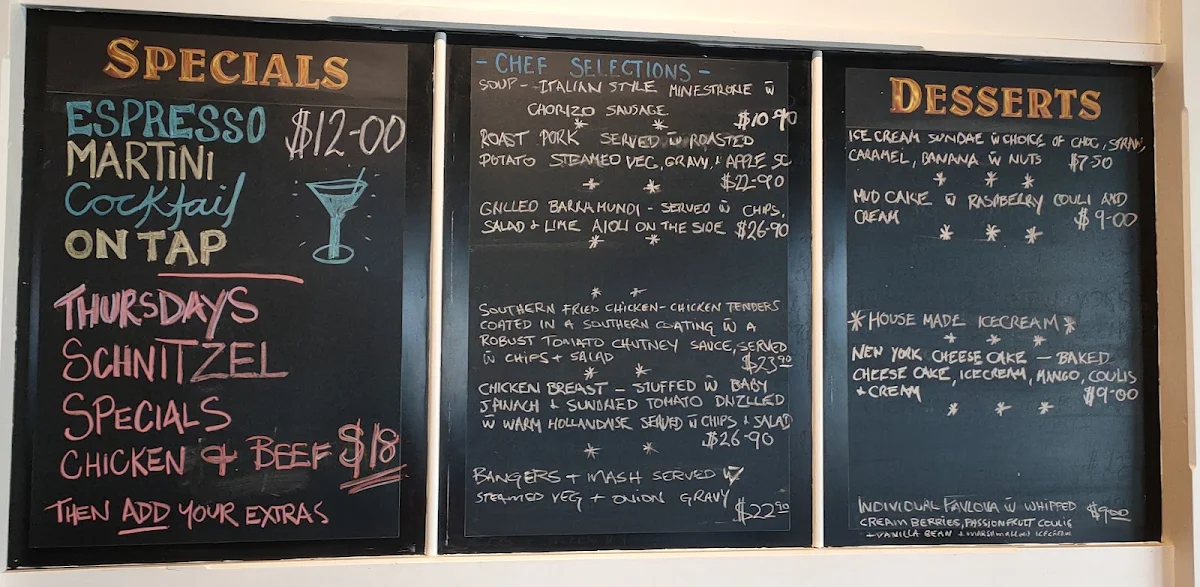 SPECIALS
ESPRESSO
MARTINI
$12-00
Cocktail
ON TAP
THURSDAYS
SCHNITZEL
SPECIALS
CHICKEN & BEEF $18
THEN ADD YOUR EXTRAS
- CHEF SELECTIONS -
SOUP - ITALIAN STYLE MINESTRONE W̄
CHORIZO SAUSAGE
$10-90
ROAST PORK SERVED W̄ ROASTED
POTATO STEAMED VEG, GRAVY, + APPLE SC
$22-90
GRILLED BARRAMUNDI - SERVED W̄ CHIPS,
SALAD + LIME AIOLI ON THE SIDE $26-90
SOUTHERN FRIED CHICKEN - CHICKEN TENDERS
COATED IN A SOUTHERN COATING W̄ A
ROBUST TOMATO CHUTNEY SAUCE, SERVED
W̄ CHIPS + SALAD $23 90
CHICKEN BREAST - STUFFED W̄ BABY
SPINACH + SUNDRIED TOMATO DRIZZLED
W̄ WARM HOLLANDAISE SERVED W̄ CHIPS + SALAD
$26-90
BANGERS + MASH SERVED W̄
STEAMED VEG + ONION GRAVY
$22 90
DESSERTS
ICE CREAM SUNDAE W̄ CHOICE OF CHOC, STRAW,
CARAMEL, BANANA W̄ NUTS $7-50
MUD CAKE W̄ RASPBERRY COULI AND
CREAM $9-00
* HOUSE MADE ICECREAM *
NEW YORK CHEESE CAKE - BAKED
CHEESE CAKE, ICECREAM, MANGO, COULIS
+ CREAM $9-00
INDIVIDUAL PAVLOVA W̄ WHIPPED $9 00
CREAM BERRIES, PASSIONFRUIT COULIS
+ VANILLA BEAN + MARSHMALLOW ICECREAM